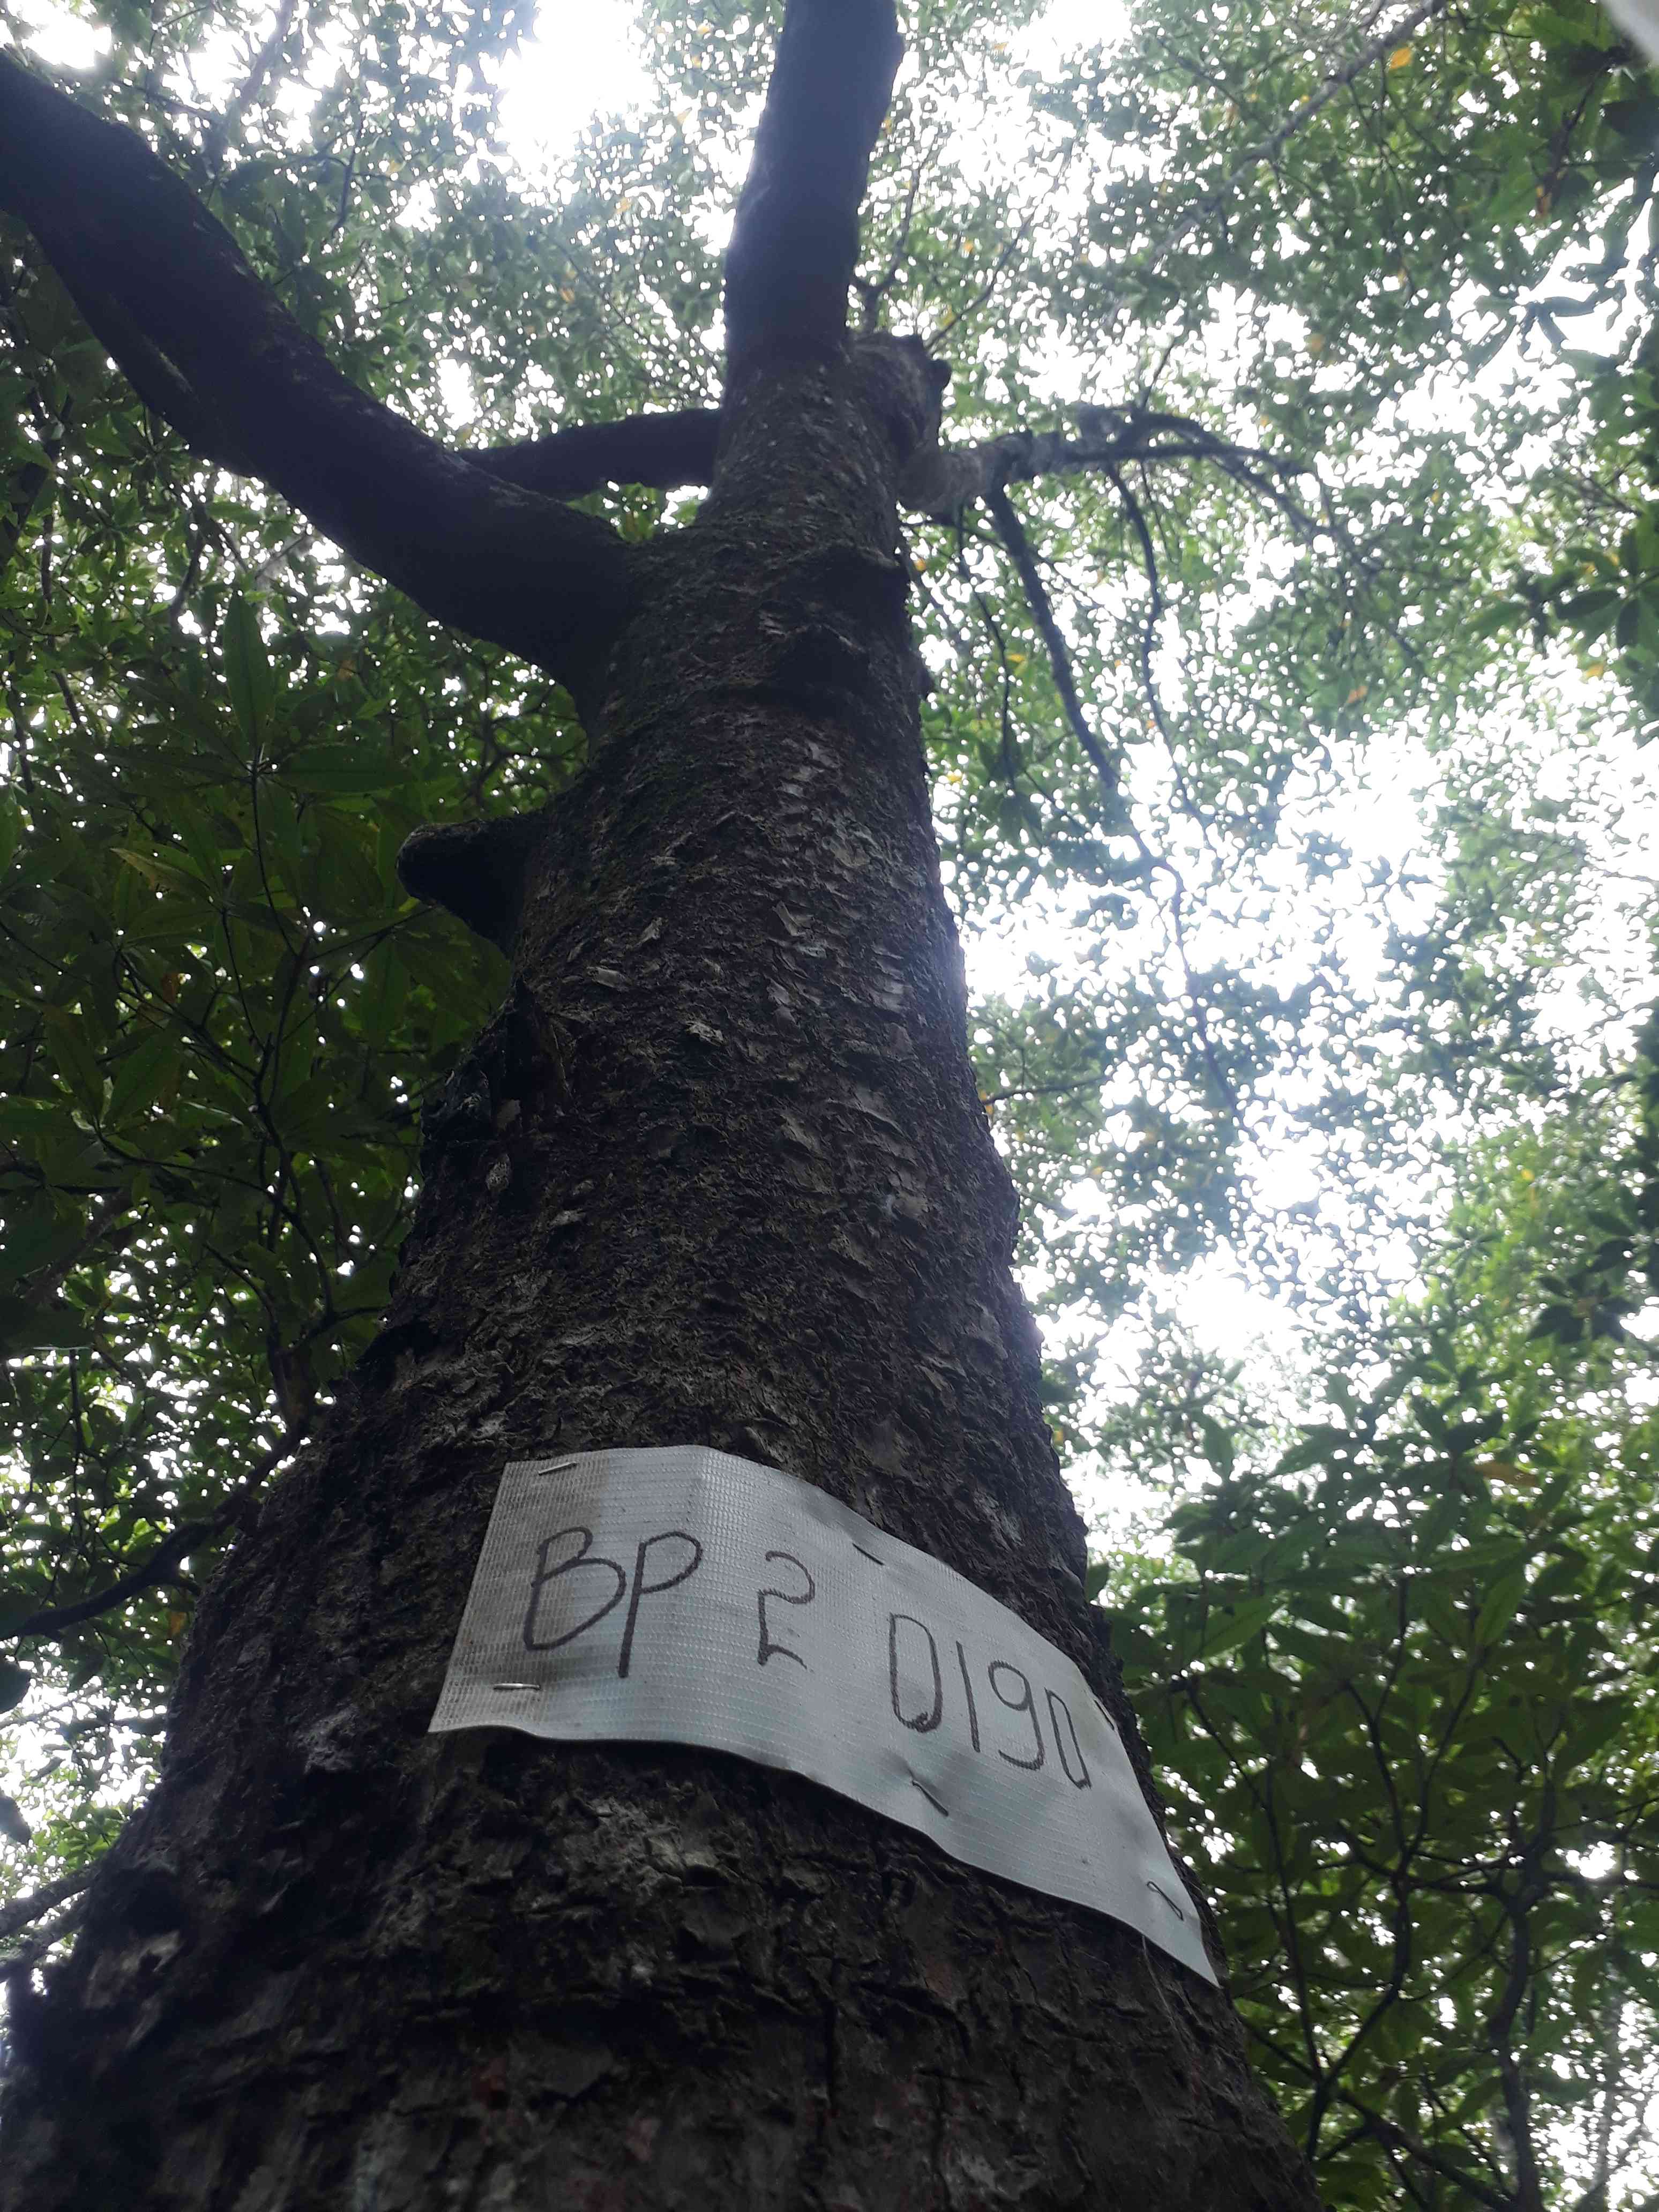 BP 2 0190